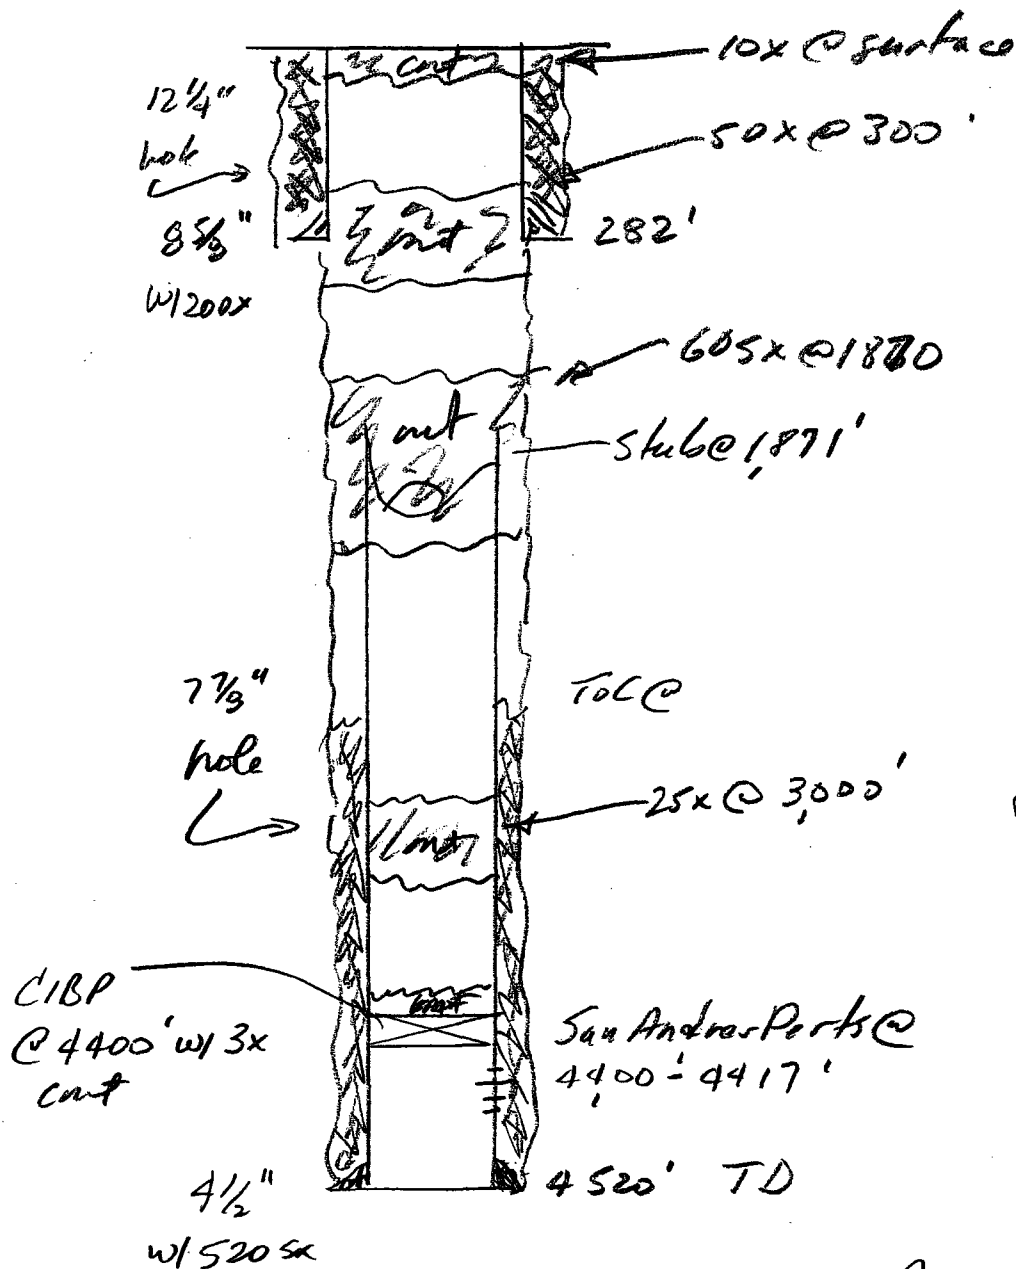 cmt
10x @ surface
12 1/4"
hole
50x @ 300'
8 5/8"
w/ 200x
cmt
282'
60sx @ 1870
cmt
Stub @ 1,871'
7 7/8"
hole
TOC @
25x @ 3,000'
cmt
CIBP
@ 4400' w/ 3x
cmt
cmt
San Andres Perfs @
4,400'-4417'
4 1/2"
w/ 520 sx
4520' TD